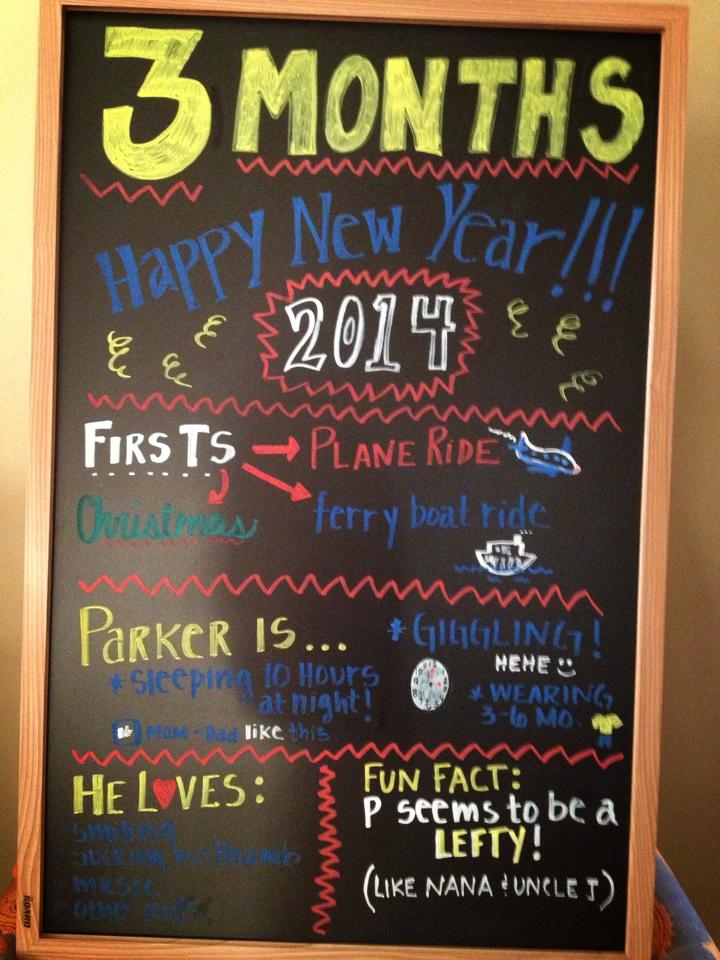 3 MONTHS
HAPPY NEW YEAR!!!
2014
FIRSTS → PLANE RIDE
Christmas
ferry boat ride
PARKER IS...
* GIGGLING!
HEHE
* Sleeping 10 Hours
at night!
* WEARING
3-6 MO.
MOM + Dad like this.
HE L♥VES:
smiling
sucking his thumb
music
other kids
FUN FACT:
P seems to be a
LEFTY!
(LIKE NANA & UNCLE J)
BOARD